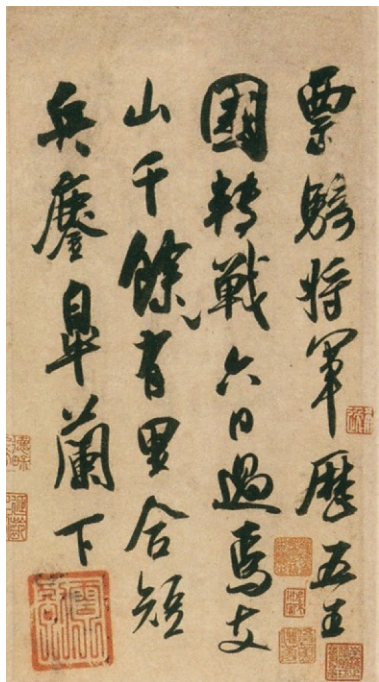 票騎將軍歷五王
國轉戰六日過焉支
山千餘有里合短
兵鏖皋蘭下